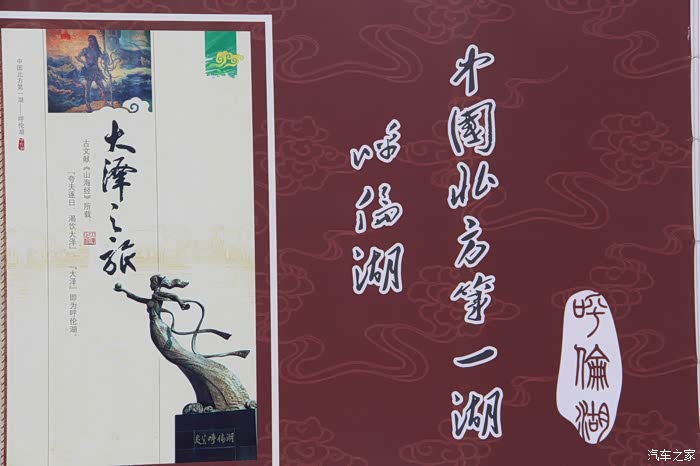 中國北方第一湖
呼倫湖
呼倫湖
中国北方第一湖——呼伦湖
大泽之旅
古文献《山海经》所载,
“夸夫逐日 渴饮大泽”,“大泽”即为呼伦湖。
汽车之家